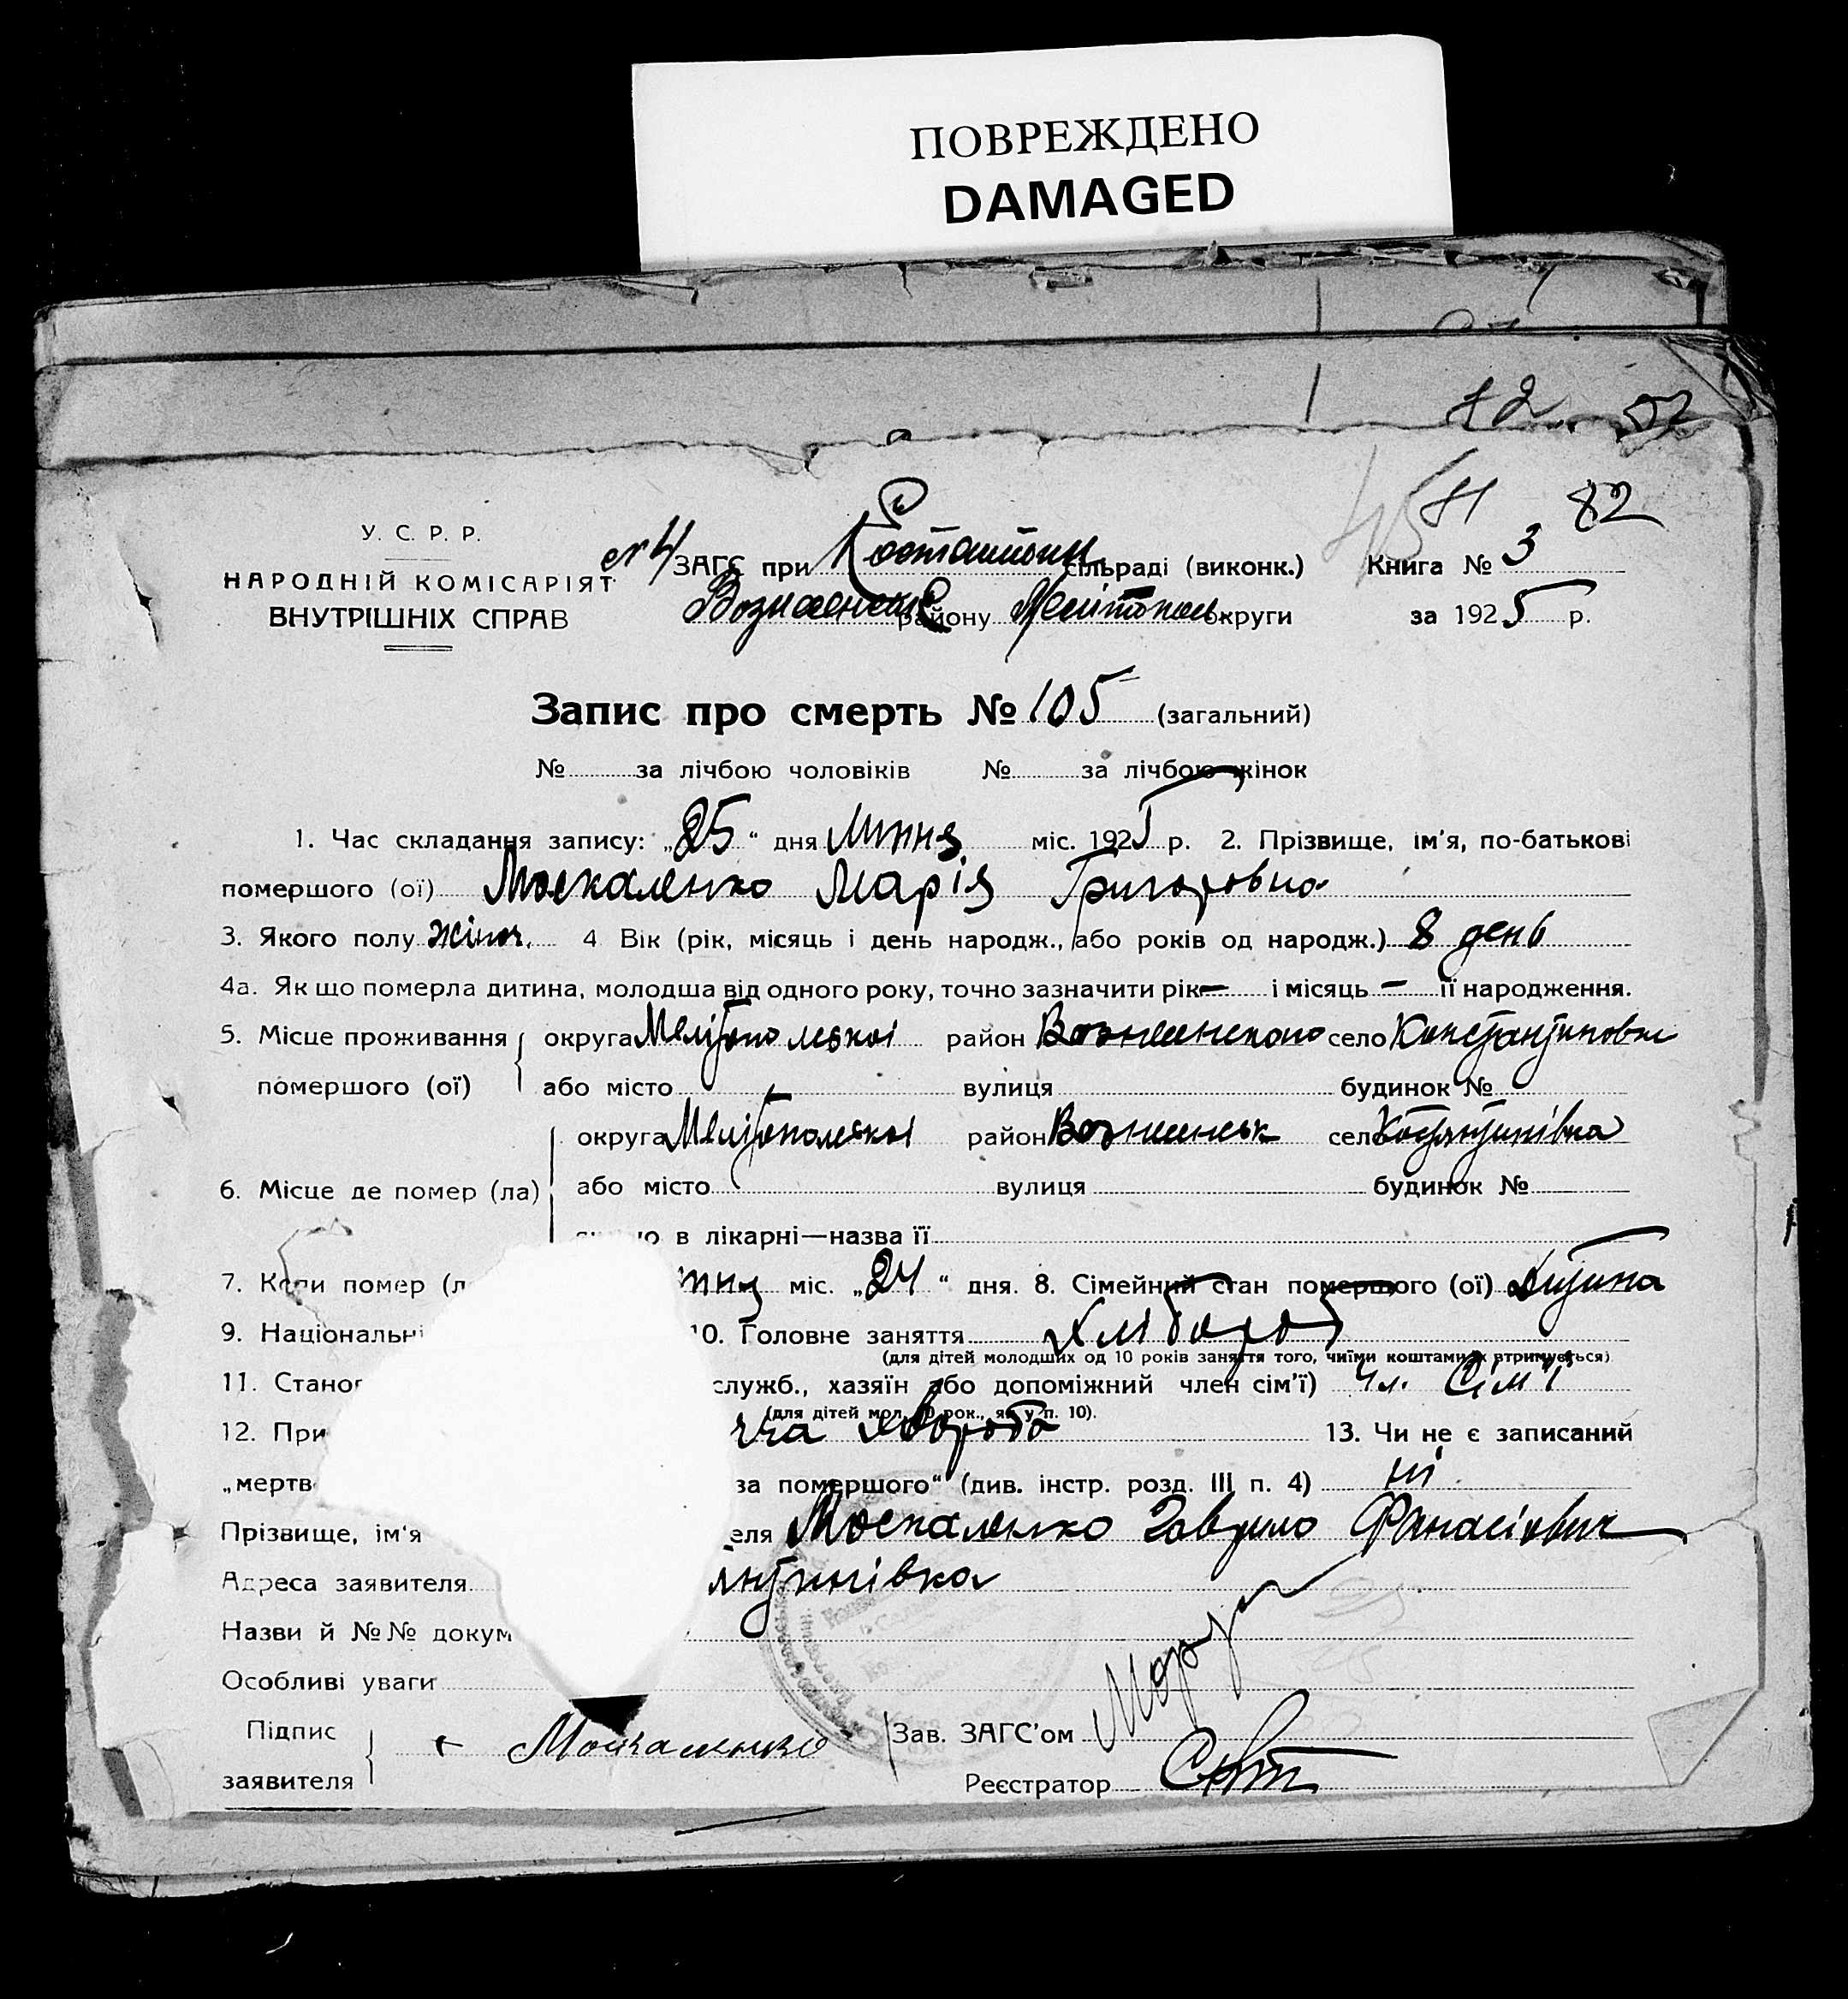 ПОВРЕЖДЕНО
DAMAGED
82
У. С. Р. Р.
НАРОДНІЙ КОМІСАРІЯТ
ВНУТРІШНІХ СПРАВ
ЗАГС при сільраді (виконк.) Книга № 3
району округи за 1925 р.
Запис про смерть № 105 (загальний)
№ за лічбою чоловіків № за лічбою жінок
1. Час складання запису: „25“ дня Липня міс. 1925 р. 2. Прізвище, ім'я, по-батькові
помершого (ої) Москаленко Марія Григоровна
3. Якого полу жіноч. 4 Вік (рік, місяць і день народж., або років од народж.) 8 день
4а. Якщо померла дитина, молодша від одного року, точно зазначити рік — і місяць — її народження.
5. Місце проживання округа Мелітопольскої район Вознесенского село Константиновка
помершого (ої) або місто вулиця будинок №
округа Мелітопольскої район Вознесенськ село Костянтинівка
6. Місце де помер (ла) або місто вулиця будинок №
о в лікарні—назва її
7. Коли помер (л пня міс. „24“ дня. 8. Сімейний стан помершого (ої) Дитина
9. Національні 10. Головне заняття хлібороб
(для дітей молодших од 10 років заняття того, чиїми коштами їх втримується)
11. Станов служб., хазяїн або допоміжний член сім'ї) Чл. Сім'ї
(для дітей мол. 10 рок., як у п. 10).
12. При ча хвороба 13. Чи не є записаний
„мертв за помершого“ (див. інстр. розд. III п. 4) ні
Прізвище, ім'я еля Москаленко Гаврило Фанасієвич
Адреса заявителя янтинівка
Назви й №№ докум
Особливі уваги
Підпис
заявителя Москаленко
Зав. ЗАГС'ом
Реєстратор